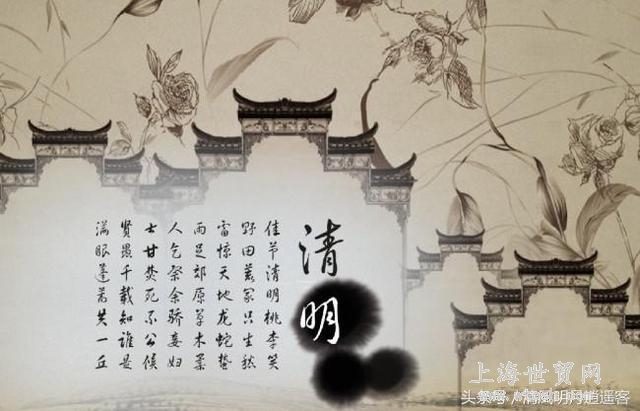 清明
佳节清明桃李笑
野田荒冢只生愁
雷惊天地龙蛇蛰
雨足郊原草木柔
人乞祭余骄妾妇
士甘焚死不公侯
贤愚千载知谁是
满眼蓬蒿共一丘
上海世贸网
头条号/清风明月逍遥客